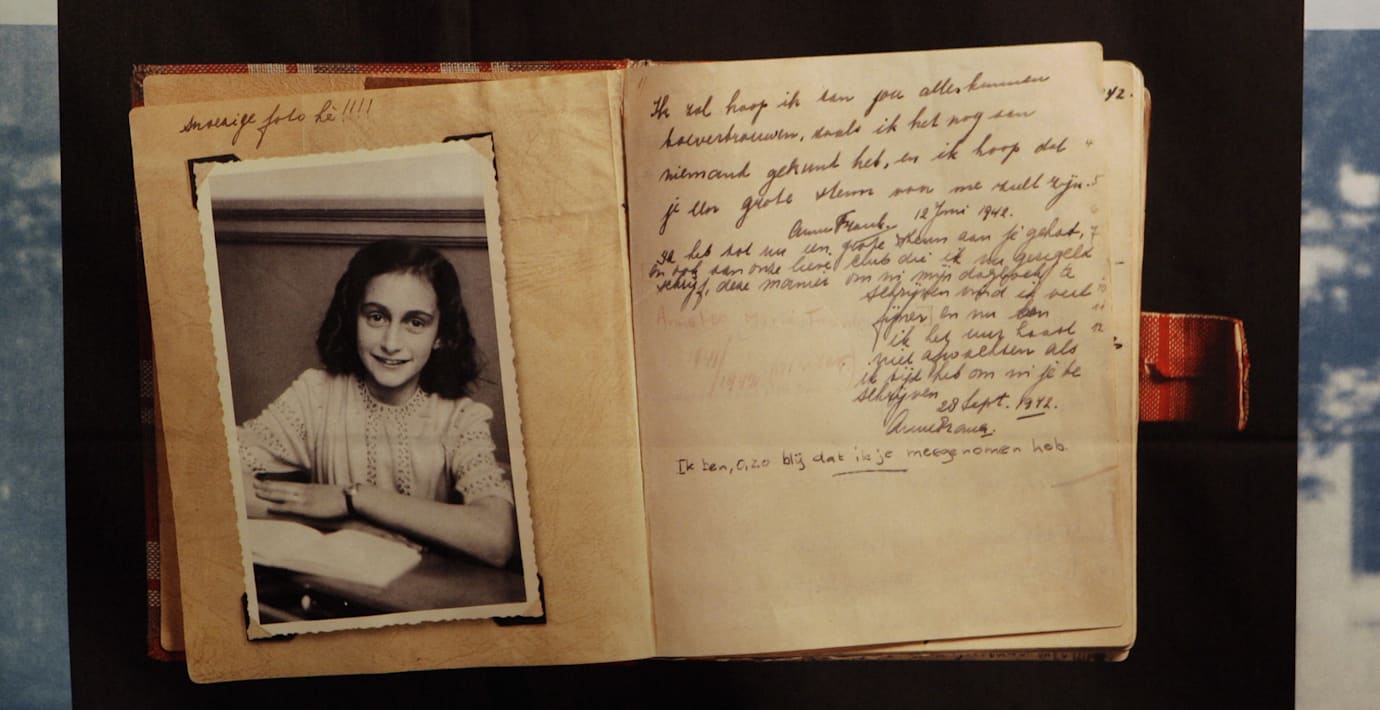 snoezige foto hè!!!!
Ik zal hoop ik aan jou alles kunnen
toevertrouwen, zoals ik het nog aan
niemand gekunt heb, en ik hoop dat
je een grote steun voor me zult zijn.
Anne Frank. 12 Juni 1942.
Ik heb tot nu een grote steun aan je gehad,
en ook aan onze lieve club die ik nu geregeld
schrijf, deze manier om in mijn dagboek te
schrijven vind ik veel
fijner en nu kan
ik het uur haast
niet afwachten als
ik tijd heb om in je te
schrijven
28 Sept. 1942.
Anne Frank.
Ik ben, o, zo blij dat ik je meegenomen heb.
42.